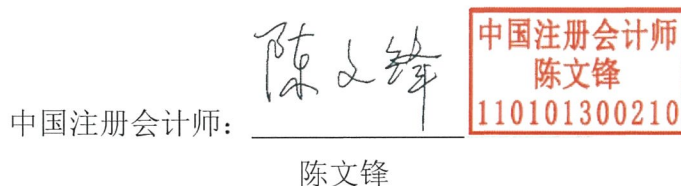 陈文锋
中国注册会计师：
陈文锋
中国注册会计师
陈文锋
110101300210